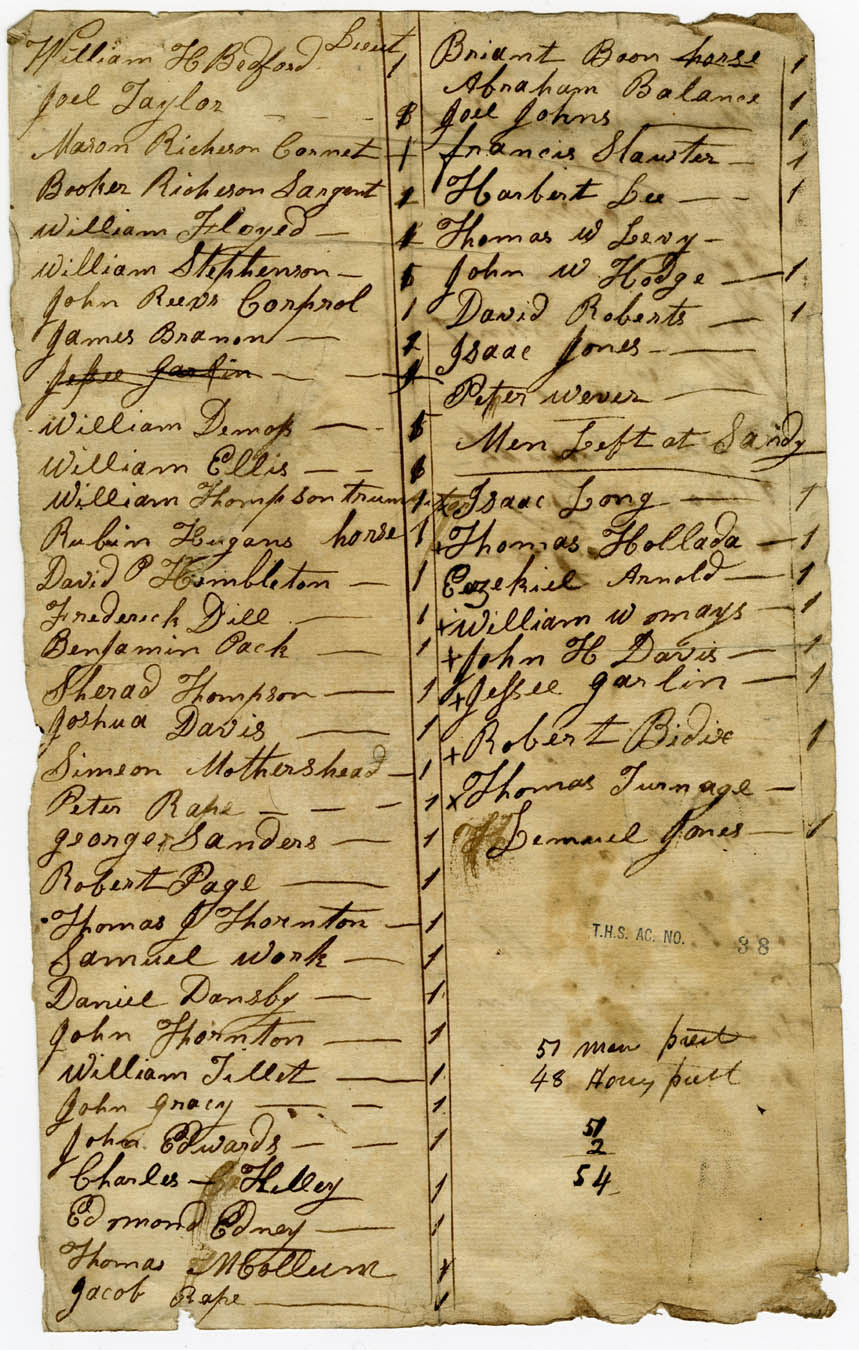 William H Bedford Lieut 1
Joel Taylor - - - 1
Mason Richeson Cornet 1
Booker Richeson Sargent 1
William Floyed - 1
William Stephenson - 1
John Reevs Corprol 1
James Branon - 2
Jessee Garlin - -
William Demoss - - 1
William Ellis - - 1
William Thompson trumpiter 1
Rubin Hugans horse 1
David P Himbleton - 1
Frederick Dill - 1
Benjamin Pack - 1
Sherad Thompson - 1
Joshua Davis - 1
Simeon Mothershead - 1
Peter Rape - - - 1
george Sanders - 1
Robert Page - 1
Thomas J Thornton - 1
Samuel Work - 1
Daniel Dansby - 1
John Thornton - 1
William Tillet - 1
John gracy - - 1
John Edwards - - 1
Charles - Helley 1
Edmond Edney - 1
Thomas McCollum 1
Jacob Rape - 1
Briant Boon horse 1
Abraham Balance 1
Joel Johns - 1
francis Slauter - 1
Harbert Lee - - 1
Thomas W Levy -
John W Hodge - 1
David Roberts - 1
Isaac Jones - -
Peter Wever -
Men Left at Sandy
x Isaac Long - 1
+ Thomas Hollada - 1
Ezekiel Arnold - 1
+ William Womays - 1
+ John H Davis - 1
+ Jessee garlin - 1
+ Robert Bidix 1
x Thomas Turnage -
Lemuel Jones - 1
T.H.S. AC. NO. 38
51 men
48
51
2
54